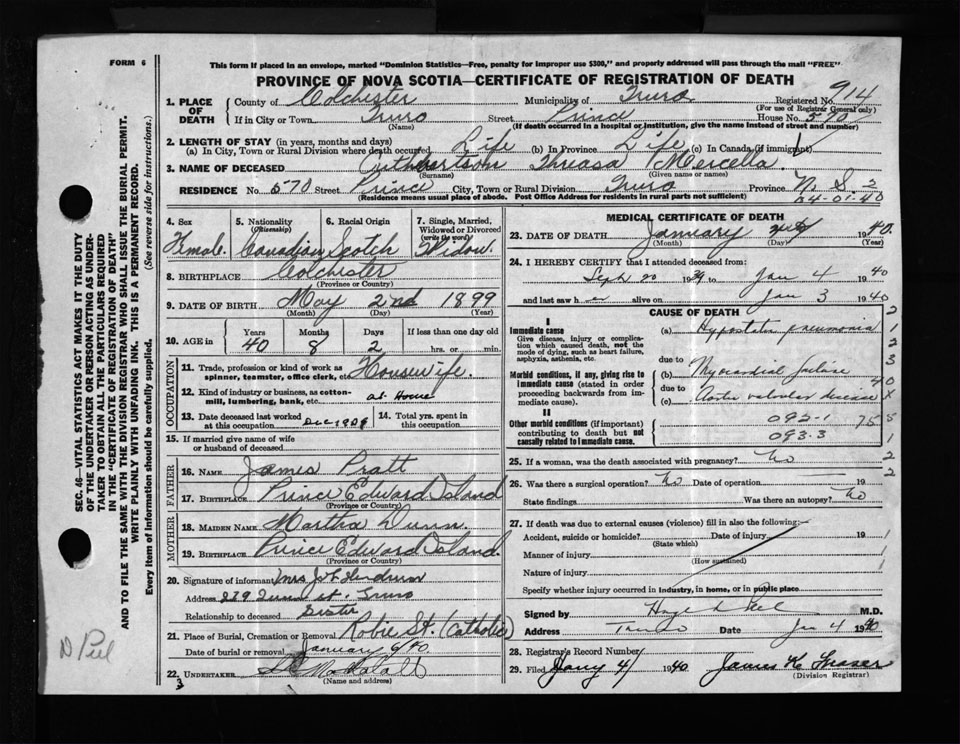 FORM 6
This form if placed in an envelope, marked "Dominion Statistics—Free, penalty for improper use $300," and properly addressed will pass through the mail "FREE"
PROVINCE OF NOVA SCOTIA—CERTIFICATE OF REGISTRATION OF DEATH
914
1. PLACE OF DEATH County of Colchester Municipality of Truro Registered No.
(For use of Registrar General only)
If in City or Town Truro Street Prince House No. 570
(Name) (If death occurred in a hospital or institution, give the name instead of street and number)
2. LENGTH OF STAY (in years, months and days)
(a) In City, Town or Rural Division where death occurred Life (b) In Province Life (c) In Canada (if immigrant)
3. NAME OF DECEASED Cuthbertson Threasa Mercella
(Surname) (Given name or names)
RESIDENCE No. 570 Street Prince City, Town or Rural Division Truro Province N. S.
(Residence means usual place of abode. Post Office Address for residents in rural parts not sufficient)
24-01-40
4. Sex 5. Nationality (Citizenship) 6. Racial Origin 7. Single, Married, Widowed or Divorced (write the word)
Female Canadian Scotch Widow
8. BIRTHPLACE Colchester
(Province or Country)
9. DATE OF BIRTH May 2nd 1899
(Month) (Day) (Year)
10. AGE in Years Months Days If less than one day old
40 8 2 hrs. or min.
OCCUPATION
11. Trade, profession or kind of work as spinner, teamster, office clerk, etc. Housewife.
12. Kind of industry or business, as cotton-mill, lumbering, bank, etc. at Home
13. Date deceased last worked at this occupation 14. Total yrs. spent in this occupation
15. If married give name of wife or husband of deceased
FATHER
16. NAME James Pratt
17. BIRTHPLACE Prince Edward Island
(Province or Country)
MOTHER
18. MAIDEN NAME Martha Dunn.
19. BIRTHPLACE Prince Edward Island.
(Province or Country)
20. Signature of informant Mrs
Address 239 St. Truro
Relationship to deceased Sister
21. Place of Burial, Cremation or Removal Robie St. (Catholic)
Date of burial or removal January 6/40
22. UNDERTAKER
(Name and address)
MEDICAL CERTIFICATE OF DEATH
23. DATE OF DEATH January 1940.
(Month) (Day) (Year)
24. I HEREBY CERTIFY that I attended deceased from:
Sept 20 1939 to Jan 4 1940
and last saw her alive on Jan 3 1940
CAUSE OF DEATH
I
Immediate cause
Give disease, injury or complication which caused death, not the mode of dying, such as heart failure, asphyxia, asthenia, etc.
(a) Hypostatic pneumonia
due to
Morbid conditions, if any, giving rise to immediate cause (stated in order proceeding backwards from immediate cause).
(b) Myocardial failure
due to
(c) Aortic valvular disease
II
Other morbid conditions (if important) contributing to death but not causally related to immediate cause.
092-1
093-3
25. If a woman, was the death associated with pregnancy? No
26. Was there a surgical operation? No Date of operation 19
State findings Was there an autopsy? No
27. If death was due to external causes (violence) fill in also the following:
Accident, suicide or homicide? Date of injury 19
(State which)
Manner of injury
(How sustained)
Nature of injury
Specify whether injury occurred in industry, in home, or in public place
Signed by M.D.
Address Truro Date Jan 4 1940
28. Registrar's Record Number
29. Filed Jany 4/ 1940 James K Fraser
(Division Registrar)
SEC. 46—VITAL STATISTICS ACT MAKES IT THE DUTY
OF THE UNDERTAKER OR PERSON ACTING AS UNDER-
TAKER TO OBTAIN ALL THE PARTICULARS REQUIRED
IN THE "CERTIFICATE OF REGISTRATION OF DEATH"
AND TO FILE THE SAME WITH THE DIVISION REGISTRAR WHO SHALL ISSUE THE BURIAL PERMIT.
WRITE PLAINLY WITH UNFADING INK. THIS IS A PERMANENT RECORD.
Every item of information should be carefully supplied. (See reverse side for instructions.)